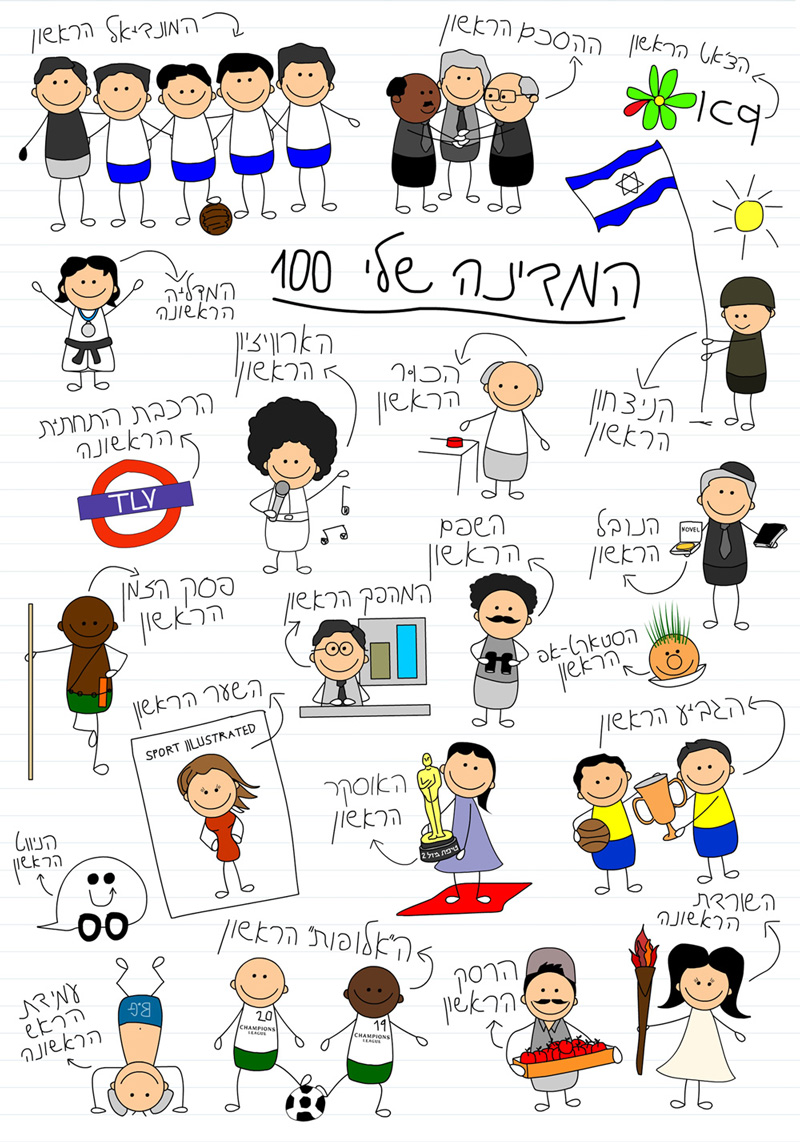 המונדיאל הראשון
ההסכם הראשון
הצ'אט הראשון
icq
המדינה שלי 100
המדליה
הראשונה
הארוויזיון
הראשון
הכור
הראשון
הניצחון
הראשון
הרכבת התחתית
הראשונה
TLV
השפם
הראשון
הנובל
הראשון
NOVEL
פסק הזמן
הראשון
המהפך הראשון
הסטארט-אפ
הראשון
השער הראשון
SPORT ILLUSTRATED
האוסקר
הראשון
טיפת מזל 2
הגביע הראשון
הניווט
הראשון
השורדת
הראשונה
ה"אלופות" הראשון
עמידת
הראש
הראשונה
B.G
20
CHAMPIONS
LEAGUE
19
CHAMPIONS
LEAGUE
הרסק
הראשון